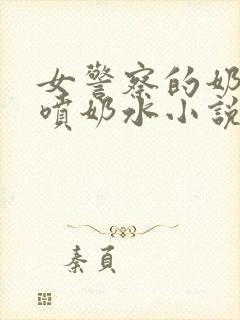 女警察的奶
噴奶水小說
秦頁